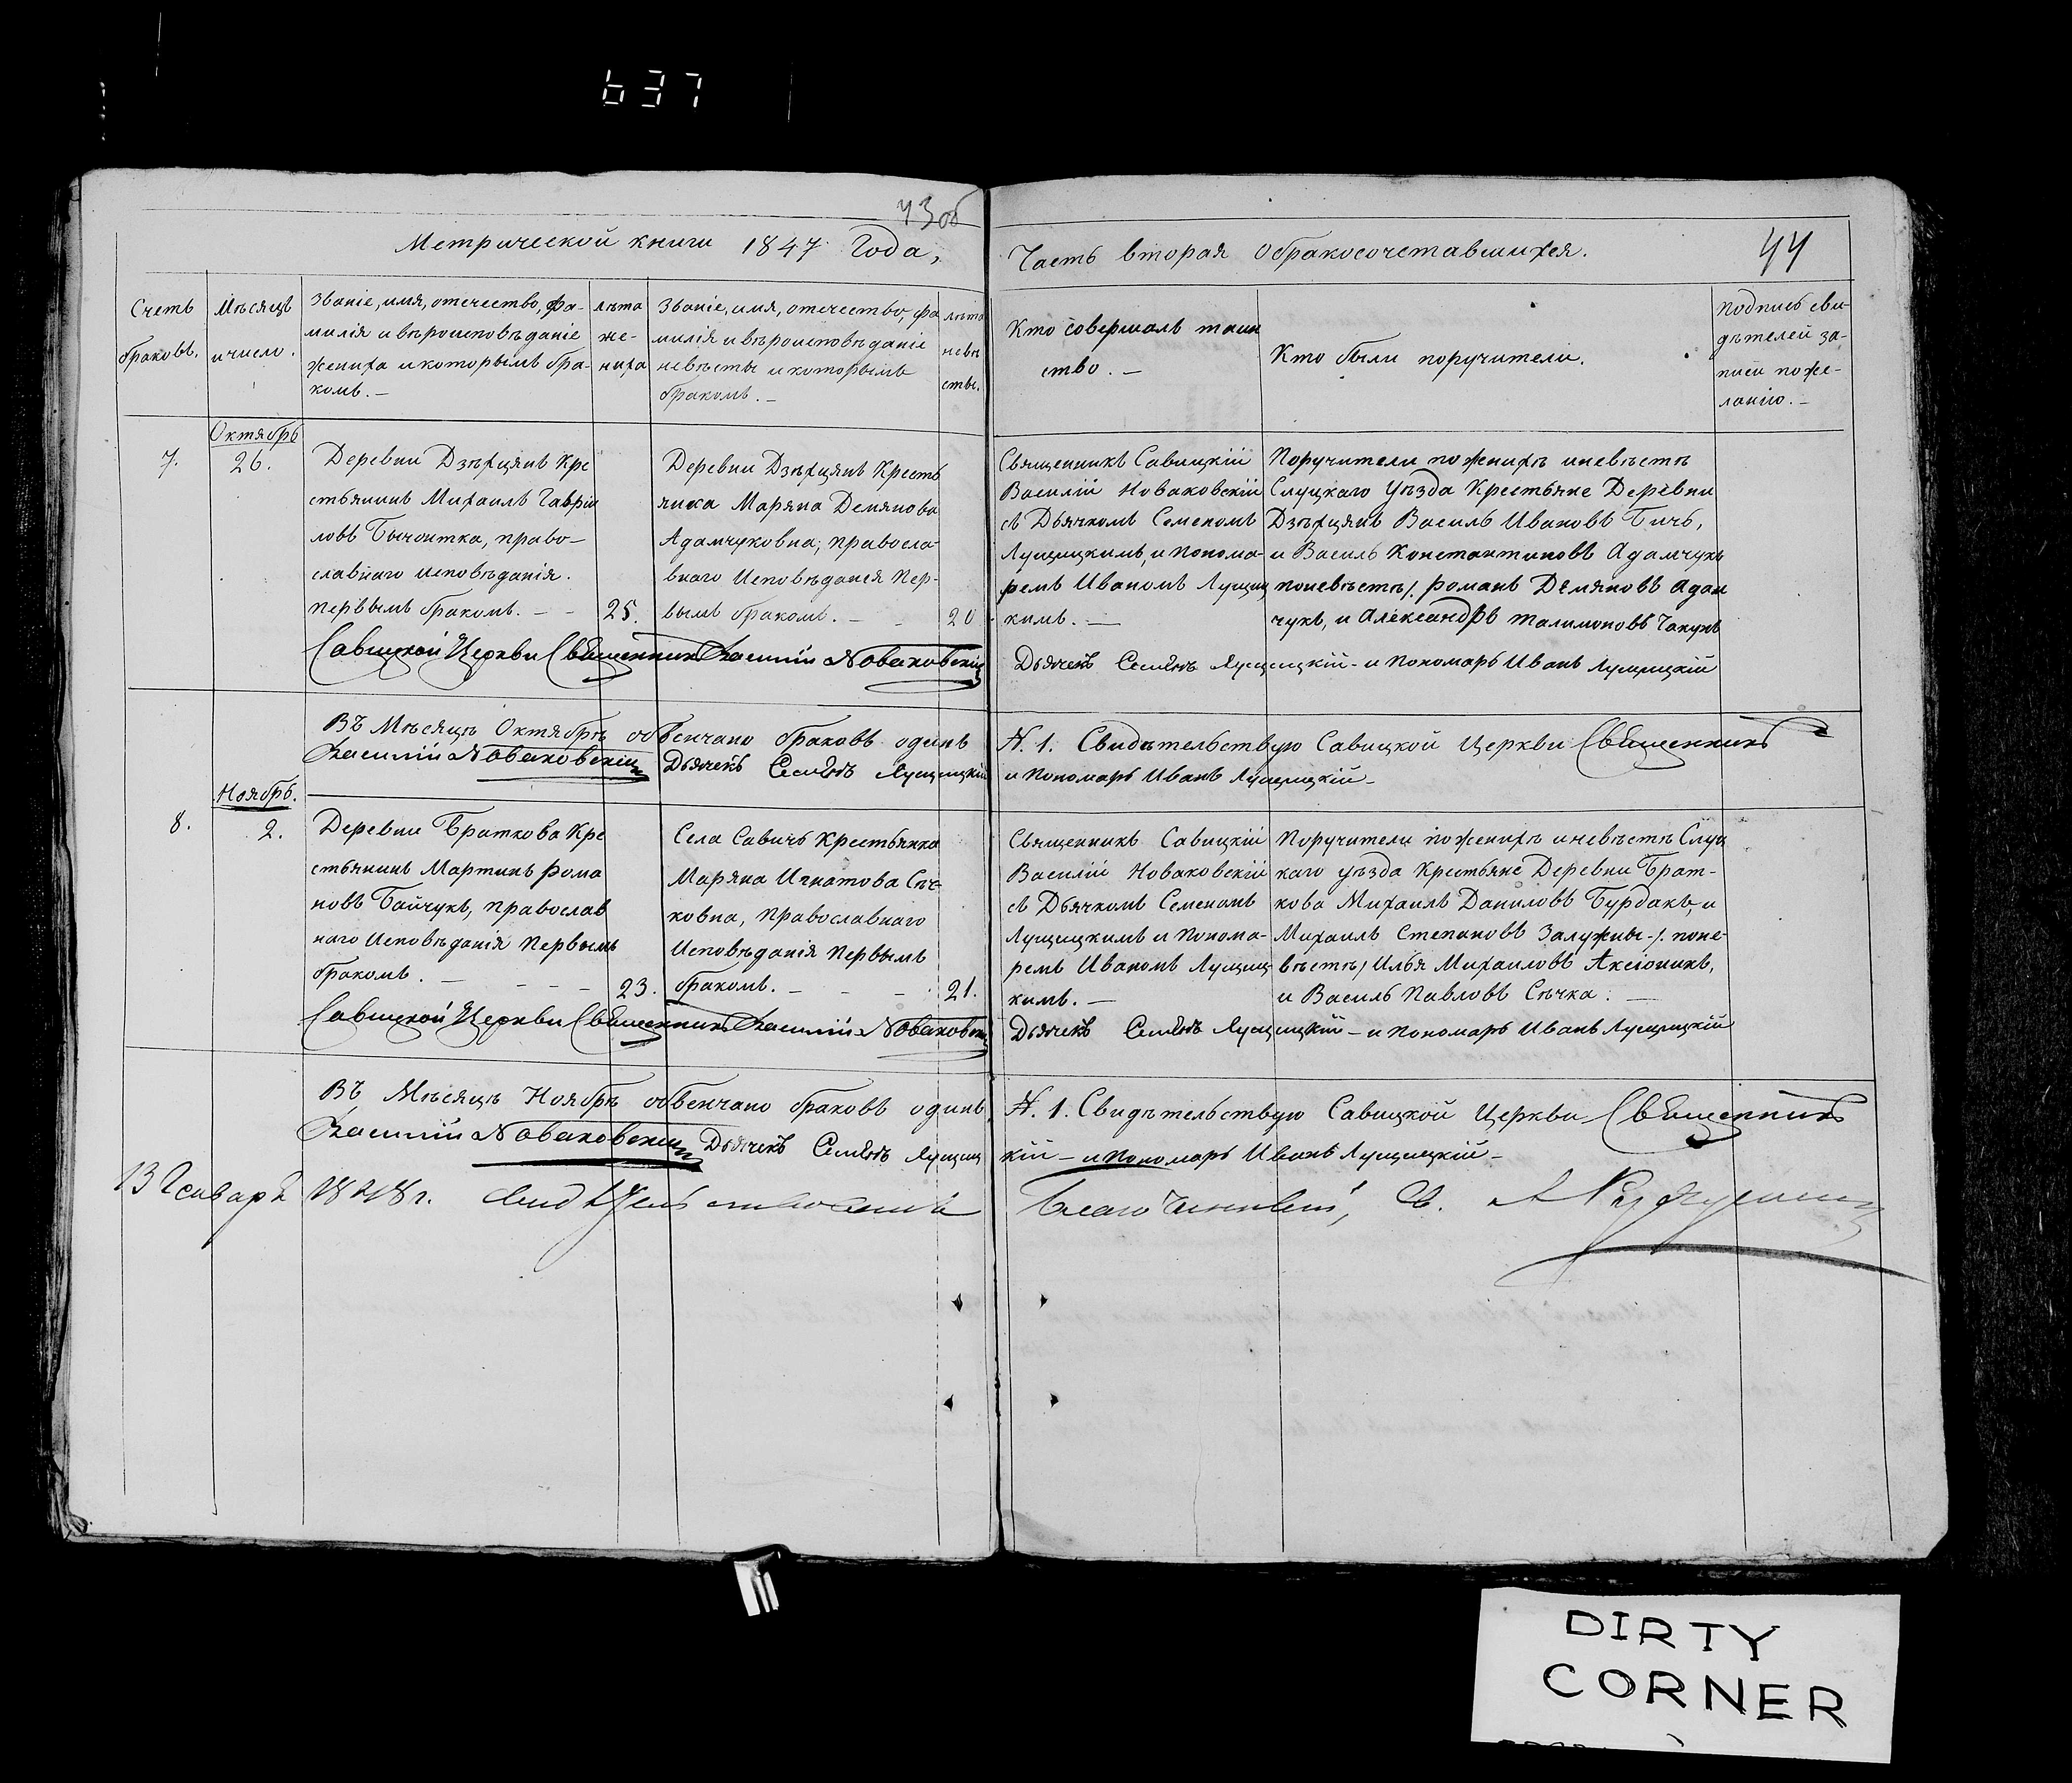 637
43об
Метрической книги 1847 Года,
Часть вторая обракосочетавшихся.
44
Счетъ
браковъ.
Мѣсяцъ
и число.
Званіе, имя, отечество, фа-
милія и вѣроисповѣданіе
жениха и которымъ бра-
комъ. —
лѣта
же-
ниха
Званіе, имя, отечество, фа
милія и вѣроисповѣданіе
невѣсты и которымъ
бракомъ. —
лѣта
невѣ
сты.
Кто совершалъ таин
ство. —
Кто были поручители.
подпись сви-
дѣтелей за-
писи поже-
ланію. —
7.
Октябрь
26.
Деревни Дзѣхцянъ Кре
стьянинъ Михаилъ Гаврiи
ловъ Бычоитка, право-
славнаго исповѣданія.
первымъ бракомъ. — —
25.
Деревни Дзѣхцянъ Кресть
янка Маряна Демянова
Адамчуковна, правосла-
внаго Исповѣданія Пер-
вымъ бракомъ. — —
20
Священникъ Савицкій
Василій Новаковскій
съ Дьячкомъ Семеномъ
Лущицкимъ, и понома-
ремъ Иваномъ Лущиц
кимъ. —
Поручители по женихѣ и невѣстѣ
Слуцкаго Уѣзда Крестьяне Деревни
Дзѣхцянъ Василь Ивановъ Бичъ,
и Василь Константиновъ Адамчукъ
поневѣстѣ/. романъ Демяновъ Адам
чукъ, и Александръ Талимоновъ Чакунъ
Савицкой Церкви Священникъ Василій Новаковскій
Дьячекъ Семенъ Лущицкій - и Пономарь Иванъ Лущицкій
Въ Мѣсяцѣ Октябрѣ обвенчано браковъ одинъ
N. 1. Свидѣтельствую Савицкой Церкви Священникъ
Василій Новаковскій Дьячекъ Семенъ Лущицкій
и Пономарь Иванъ Лущицкій -
8.
Ноябрь.
2.
Деревни Браткова Кре
стьянинъ Мартинъ Рома
новъ Байчукъ, православ
наго Исповѣданія Первымъ
бракомъ. — — — —
23.
Села Савичъ Крестьянка
Маряна Игнатова Сѣч-
ковна, Православнаго
Исповѣданія Первымъ
бракомъ. — — —
21.
Священникъ Савицкій
Василій Новаковскій
съ Дьячкомъ Семеномъ
Лущицкимъ и Понома-
ремъ Иваномъ Лущиц
кимъ. —
Поручители по женихѣ и невѣстѣ Слуц
каго уѣзда Крестьяне Деревни Брат-
кова Михаилъ Даниловъ Бурдакъ, и
Михаилъ Степановъ Залужны -/. поне-
вѣстѣ/ Илья Михаиловъ Аксіоникъ,
и Василь Павловъ Сѣчка. —
Савицкой Церкви Священникъ Василій Новаковскій
Дьячекъ Семенъ Лущицкій - и Пономарь Иванъ Лущицкій
Въ Мѣсяцѣ Ноябрѣ обвенчано браковъ одинъ,
N. 1. Свидѣтельствую Савицкой Церкви Священникъ
Василій Новаковскій Дьячекъ Семенъ Лущиц
кій - и Пономарь Иванъ Лущицкій -
13 Генваря 1848 г.
Благочинный, Св.
DIRTY
CORNER